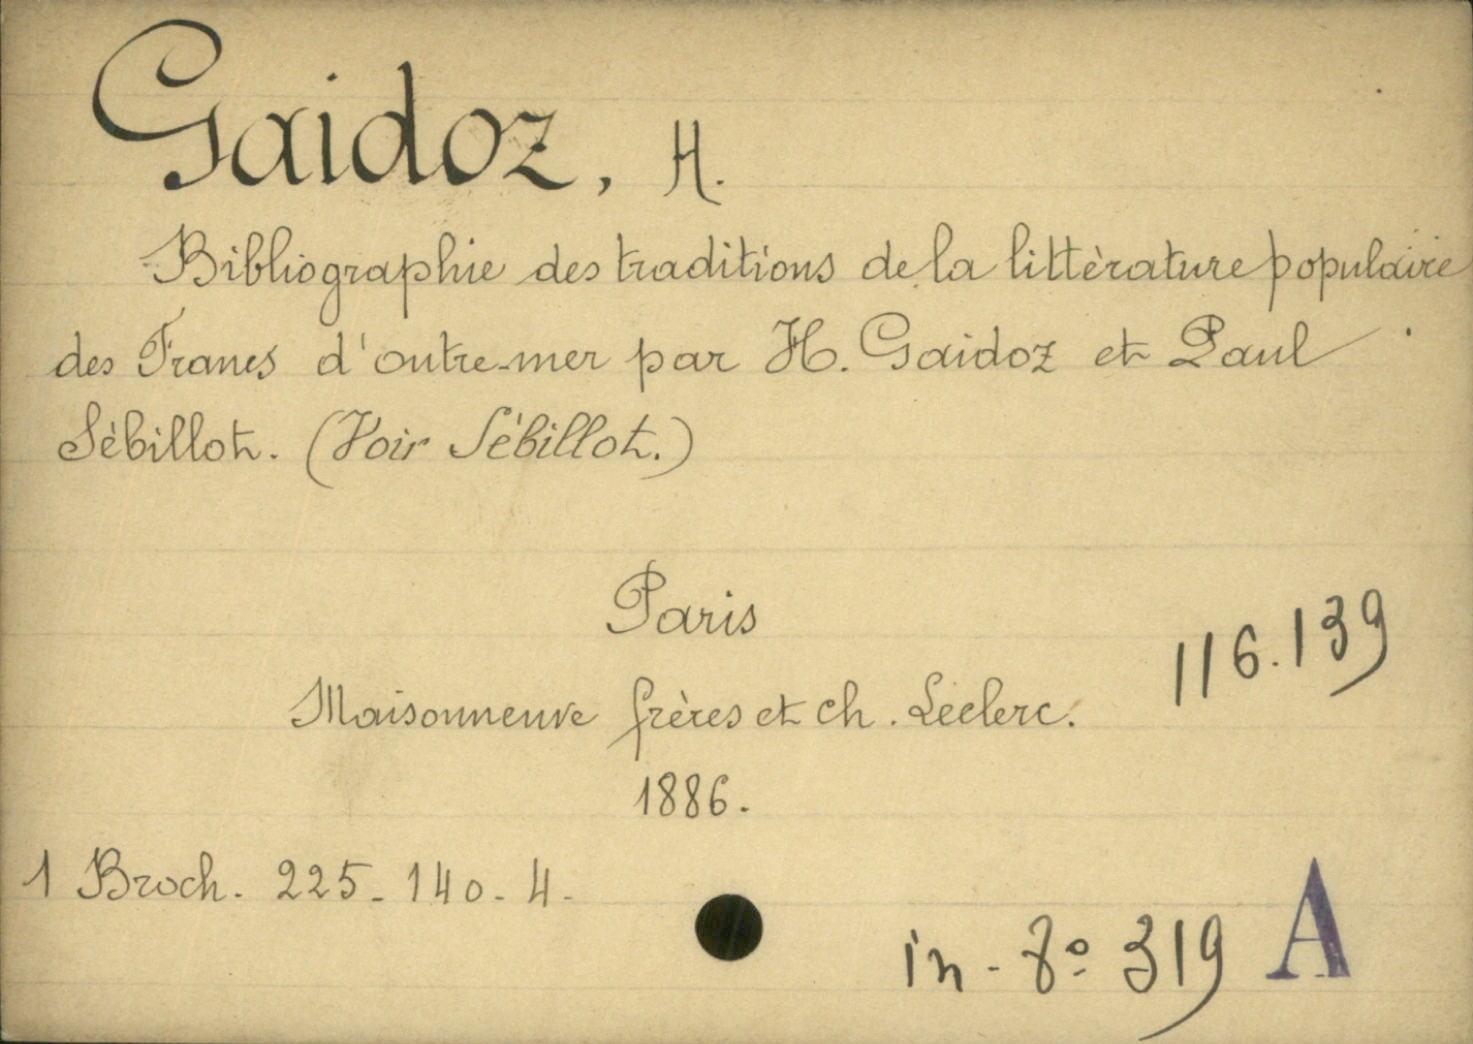 Gaidoz, H.
Bibliographie des traditions de la littèrature populaire
des Francs d'outre-mer par H. Gaidoz et Paul
Sèbillot. (Voir Sébillot.)
Paris
116.139
Maisonneuve frères et ch. Leclerc.
1886.
1 Broch. 225-140-4-
in-8º 319 A